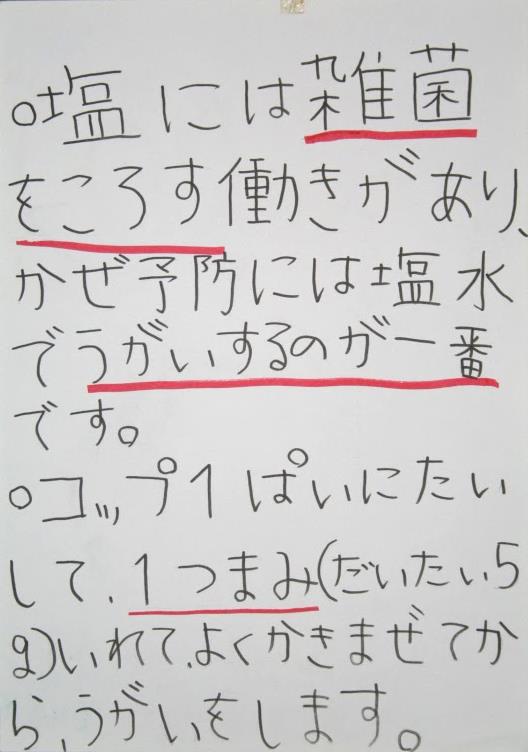 ○塩には雑菌
をころす働きがあり、
かぜ予防には塩水
でうがいするのが一番
です。
○コップ1ぱいにたい
して、1つまみ(だいたい5
g)いれて、よくかきまぜてか
ら、うがいをします。